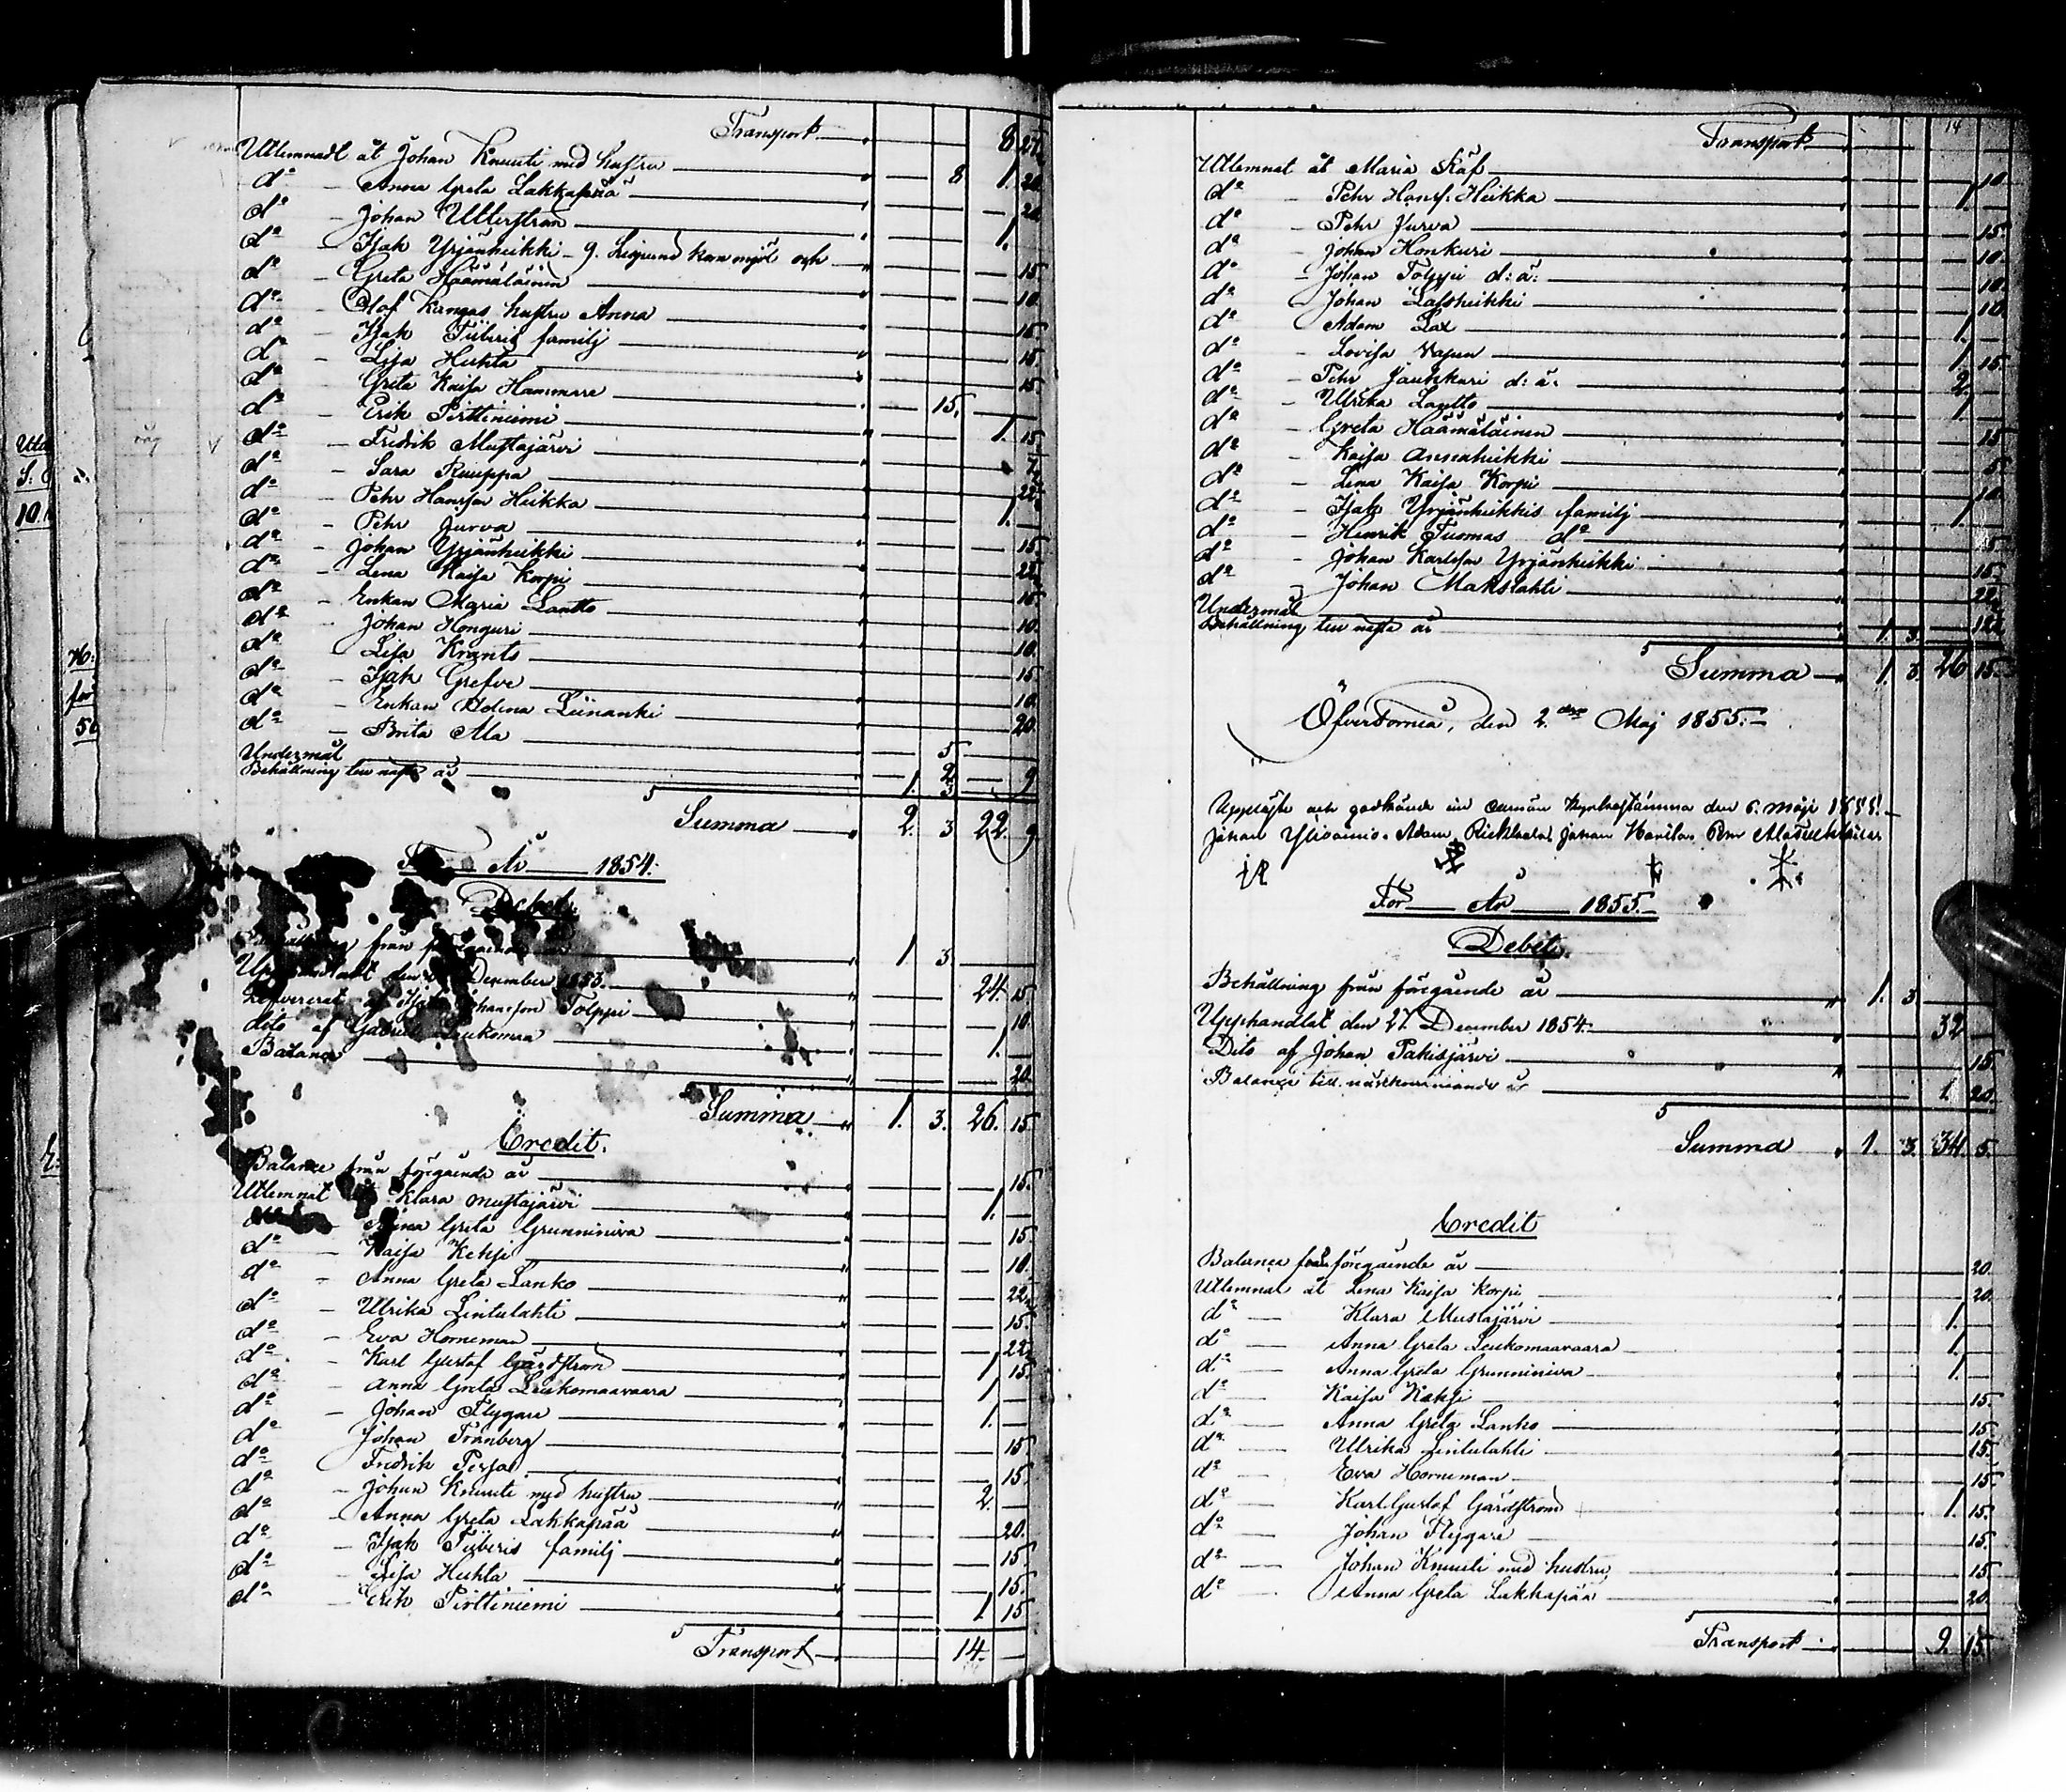 Transport 8 27
Utlemnadt åt Johan Knuuti med hustru 8 1. 20
do - Anna Greta Lakkapää 20
do - Johan Utterström 1.
do - Isak Yrjänheikki - g. Lispund kornmjöl och 15.
do - Greta Häämäläinen 10.
do - Olof Kangas hustru Anna 15.
do - Isak Tiiberis familj 15
do - Lisa Huhta 15.
do Greta Kaisa Hammare 15.
do - Erik Pirttiniemi 1. 15
do - Fredrik Mustajärvi
do - Sara Ruuppa 22½
do - Pehr Hansson Heikka 1.
do - Pehr Jurva 15.
do - Johan Yrjänheikki 22½
do - Lena Kaisa Korpi 15
do - Enkan Maria Lantto 10.
do - Johan Honguri 10.
do - Lisa Krants 15
do - Isak Grefve 10
do - Enkan Adona Liinanki 20.
do - Brita Ala
Undermål 5
Behållning till nästa år 1. 3 9
Summa 2. 3 22. 9
För År 1854.
Debet.
från 1 3
Upphandlat den December 1853. 24. 15
Lefvererat af Isak Johansson Tolppi 10.
dito af Gabriel Leukomaa 1.
Balance 20.
Summa 1. 3. 26. 15
Credit.
Balance från föregående år 15.
Utlemnat Klara Mustajärvi 1.
Anna Greta Grunniniva 15
do - Kaisa Kehji 10.
do - Anna Greta Lanko 22½
do - Ulrika Lintulahti 15.
do - Eva Horneman 22½
do - Karl Gustaf Gärdström 1 15
do - Anna Greta Leukomaavaara 1
do - Johan Flygare 1.
do Johan Tranberg 15
do Fredrik Persa 15.
do - Johan Knuuti med hustru 2.
do - Anna Greta Lakkapää 20.
do - Isak Tiiberis familj 15
do - Lisa Huhta 15.
do - Erik Pirttiniemi 1 15
Transport 14.
14
Transport
Utlemnat åt Maria Käf 10
do - Pehr Hanss. Heikka 1.
do - Pehr Jurva 15.
do - Johan Honkuri 10.
do - Johan Tolppi d: ä: 10.
do - Johan Lassheikki 10.
do Adam Lax 1.
do - Lovisa Vapun 1. 15
do - Pehr Jauhkuri d: ä: 2.
do - Ulrika Lantto 1.
do - Greta Häämäläinen 15
do - Kaisa Annaheikki 5
do - Lena Kaisa Korpi 10.
do - Isak Yrjänheikkis familj 1.
do - Henrik Tuomas do 5
do - Johan Karlsson Yrjänheikki 15.
do - Johan Makslahti 22½
Undermål 12½
Behållning till nästa år 1. 3.
Summa 1. 3. 26 15.
ÖfverTorneå, den 2.dra Maj 1855.
Uppläste och godkände vid allmän Kyrkostämma den 6. Maji 1855.
Johan Ylivainio. Adam Johan
För År 1855.
Debet.
Behållning från föregående år 1. 3
Upphandlat den 27. December 1854. 32
Dito af Johan Pakisjärvi 15
Balance till nästkommande år 1. 20.
Summa 1. 3. 34. 5.
Credit
Balance från föregående år 20.
Utlemnat åt Lena Kaisa Korpi 20.
do Klara Mustajärvi 1.
do Anna Greta Leukomaavaara 1.
do Anna Greta Grunniniva 1.
do Kaisa Kehji 15.
do Anna Greta Lanko 15
do Ulrika Lintulahti 15.
do Eva Horneman 15
do Karl Gustaf Gärdström 1. 15.
do Johan Flygare 15.
do Johan Knuuti med hustru 15
do Anna Greta Lakkapää 20
Transport 9. 15.